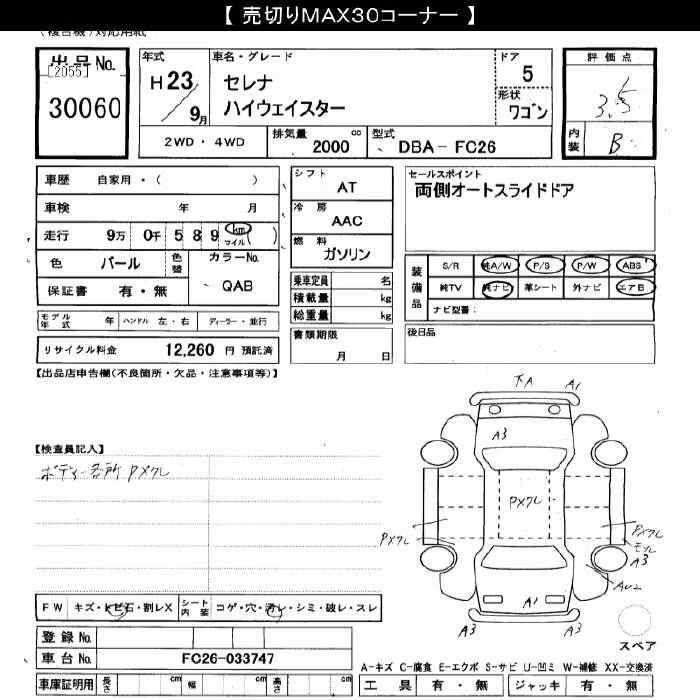 【 売切りMAX30コーナー 】
(複合機)対応用紙
出品No.
[2055]
30060
年式
H23
9月
車名・グレード
セレナ
ハイウェイスター
ドア
5
形状
ワゴン
2WD・4WD
排気量 cc
2000
型式
DBA- FC26
評価点
3.5
内装
B
車歴 自家用・( )
車検 年 月
走行 9万 0千 5 8 9 km マイル ( )
色 パール 色替
カラーNo.
QAB
保証書 有・無
モデル年式 年 ハンドル 左・右 ディーラー・並行
リサイクル料金 12,260 円 預託済
シフト
AT
冷房
AAC
燃料
ガソリン
乗車定員 名
積載量 kg
総重量 kg
書類期限
月 日
セールスポイント
両側オートスライドドア
装備品
S/R 純A/W P/S P/W ABS
純TV 純ナビ 革シート 外ナビ エアB
ナビ型番:
後日品
【出品店申告欄(不良箇所・欠品・注意事項等)】
【検査員記入】
ボディー各所 PXクレ
下A A1
A3
PXクレ
PXクレ
PXクレ
モール
A3
AU2
A1
A3 A3
スペア
FW キズ・トビ石・割レX
シート内装 コゲ・穴・汚レ・シミ・破レ・スレ
登録No.
車台No. FC26-033747
車庫証明用 長さ cm 幅 cm 高さ cm
A-キズ C-腐食 E-エクボ S-サビ U-凹ミ W-補修 XX-交換済
工具 有・無 ジャッキ 有・無